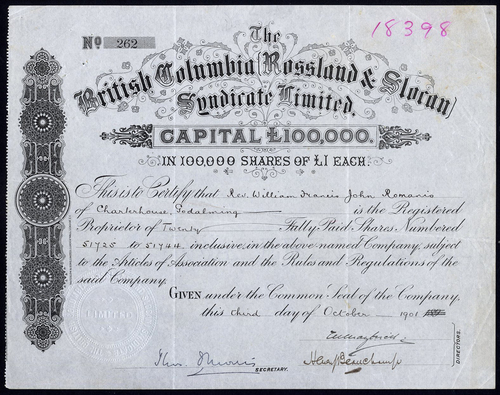 18398
No 262
The
British Columbia (Rossland & Slocan)
Syndicate Limited.
CAPITAL £100,000.
IN 100,000 SHARES OF £1 EACH.
This is to Certify that Rev. William Francis John Romanis
of Charterhouse, Godalming is the Registered
Proprietor of Twenty Fully Paid Shares Numbered
51725 to 51744 inclusive, in the above-named Company, subject
to the Articles of Association and the Rules and Regulations of the
said Company.
GIVEN under the Common Seal of the Company,
this third day of October 1901
LIMITED
SECRETARY.
DIRECTORS.